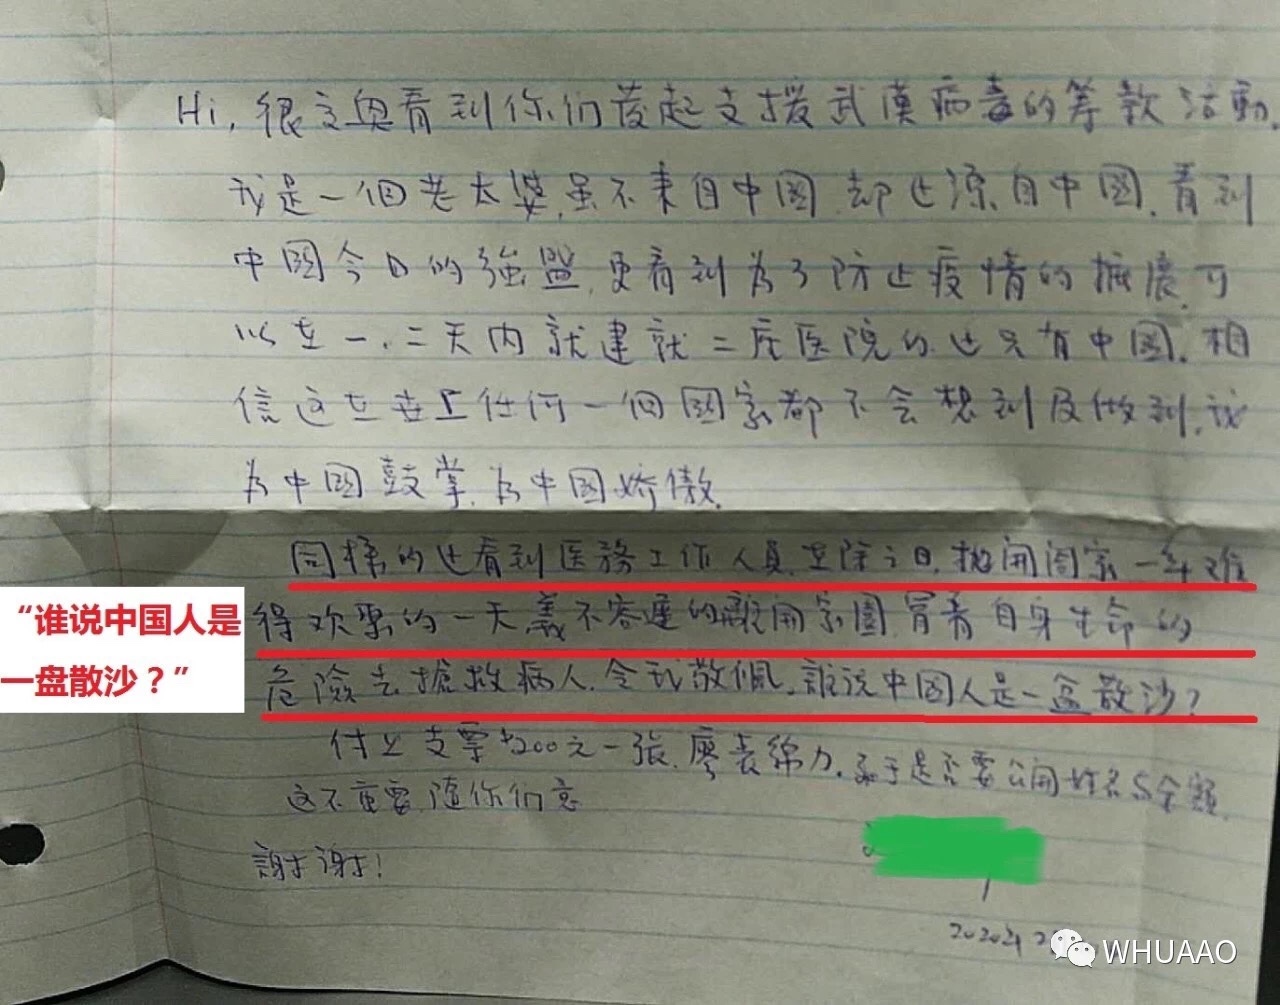 Hi, 很高奥看到你们茇起支援武漢病毒的筹款活動.
我是一個老太婆,虽不来自中國,却也源自中國,看到
中國今日的強盟,更看到为了防止疫情的拡展,可
以在一.二天内就建就二座医院的也只有中國.相
信这在世上任何一個國家都不会想到及做到,我
为中國鼓掌,为中國娇傲.
同様的也看到医務工作人員在除夕日,抛開阖家一年难
“谁说中国人是
得欢聚的一天義不容遲的離開家園,冒着自身生命的
一盘散沙？”
危險去搶救病人.令我敬佩,誰说中國人是一盆散沙?
付上支票$200元一張,廖表绵力.至于是否要公開姓名与金額
这不重要,随你们意
謝謝!
2020年2
WHUAAO